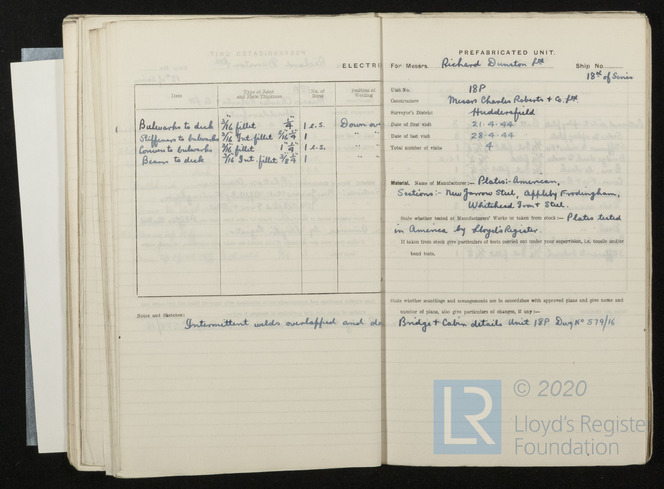 ELECTRI
Item
Type of Joint and Plate Thickness
No. of Runs
Position of Welding
Bulwarks to deck 3/16 fillet 1/4" 1 e.s. Down
Stiffeners to bulwarks 3/16 Int. fillet 3/16 1/4 1 " "
to bulwarks 3/16 fillet 1" 1/4" 1 e.s. " "
Beams to deck 3/16 Int. fillet 3/8 1/4 1 " "
Notes and Sketches:
Intermittent welds overlapped and
PREFABRICATED UNIT.
For Messrs. Richard Dunston Ltd Ship No.
18th of Series
Unit No. 18P
Constructors Messrs Charles Roberts & Co. Ltd.
Surveyor's District Huddersfield
Date of first visit 21·4·44
Date of last visit 28·4·44
Total number of visits 4
Material. Name of Manufacturer:— Plates:- American,
Sections:- New Jarrow Steel, Appleby Frodingham,
Whitehead Iron & Steel.
State whether tested at Manufacturers' Works or taken from stock:— Plates tested
in America by Lloyd's Register.
If taken from stock give particulars of tests carried out under your supervision, i.e. tensile and/or
bend tests.
State whether scantlings and arrangements are in accordance with approved plans and give name and
number of plans, also give particulars of changes, if any:—
Bridge & Cabin details Unit 18P Dwg No 579/16
LR
© 2020
Lloyd's Register
Foundation